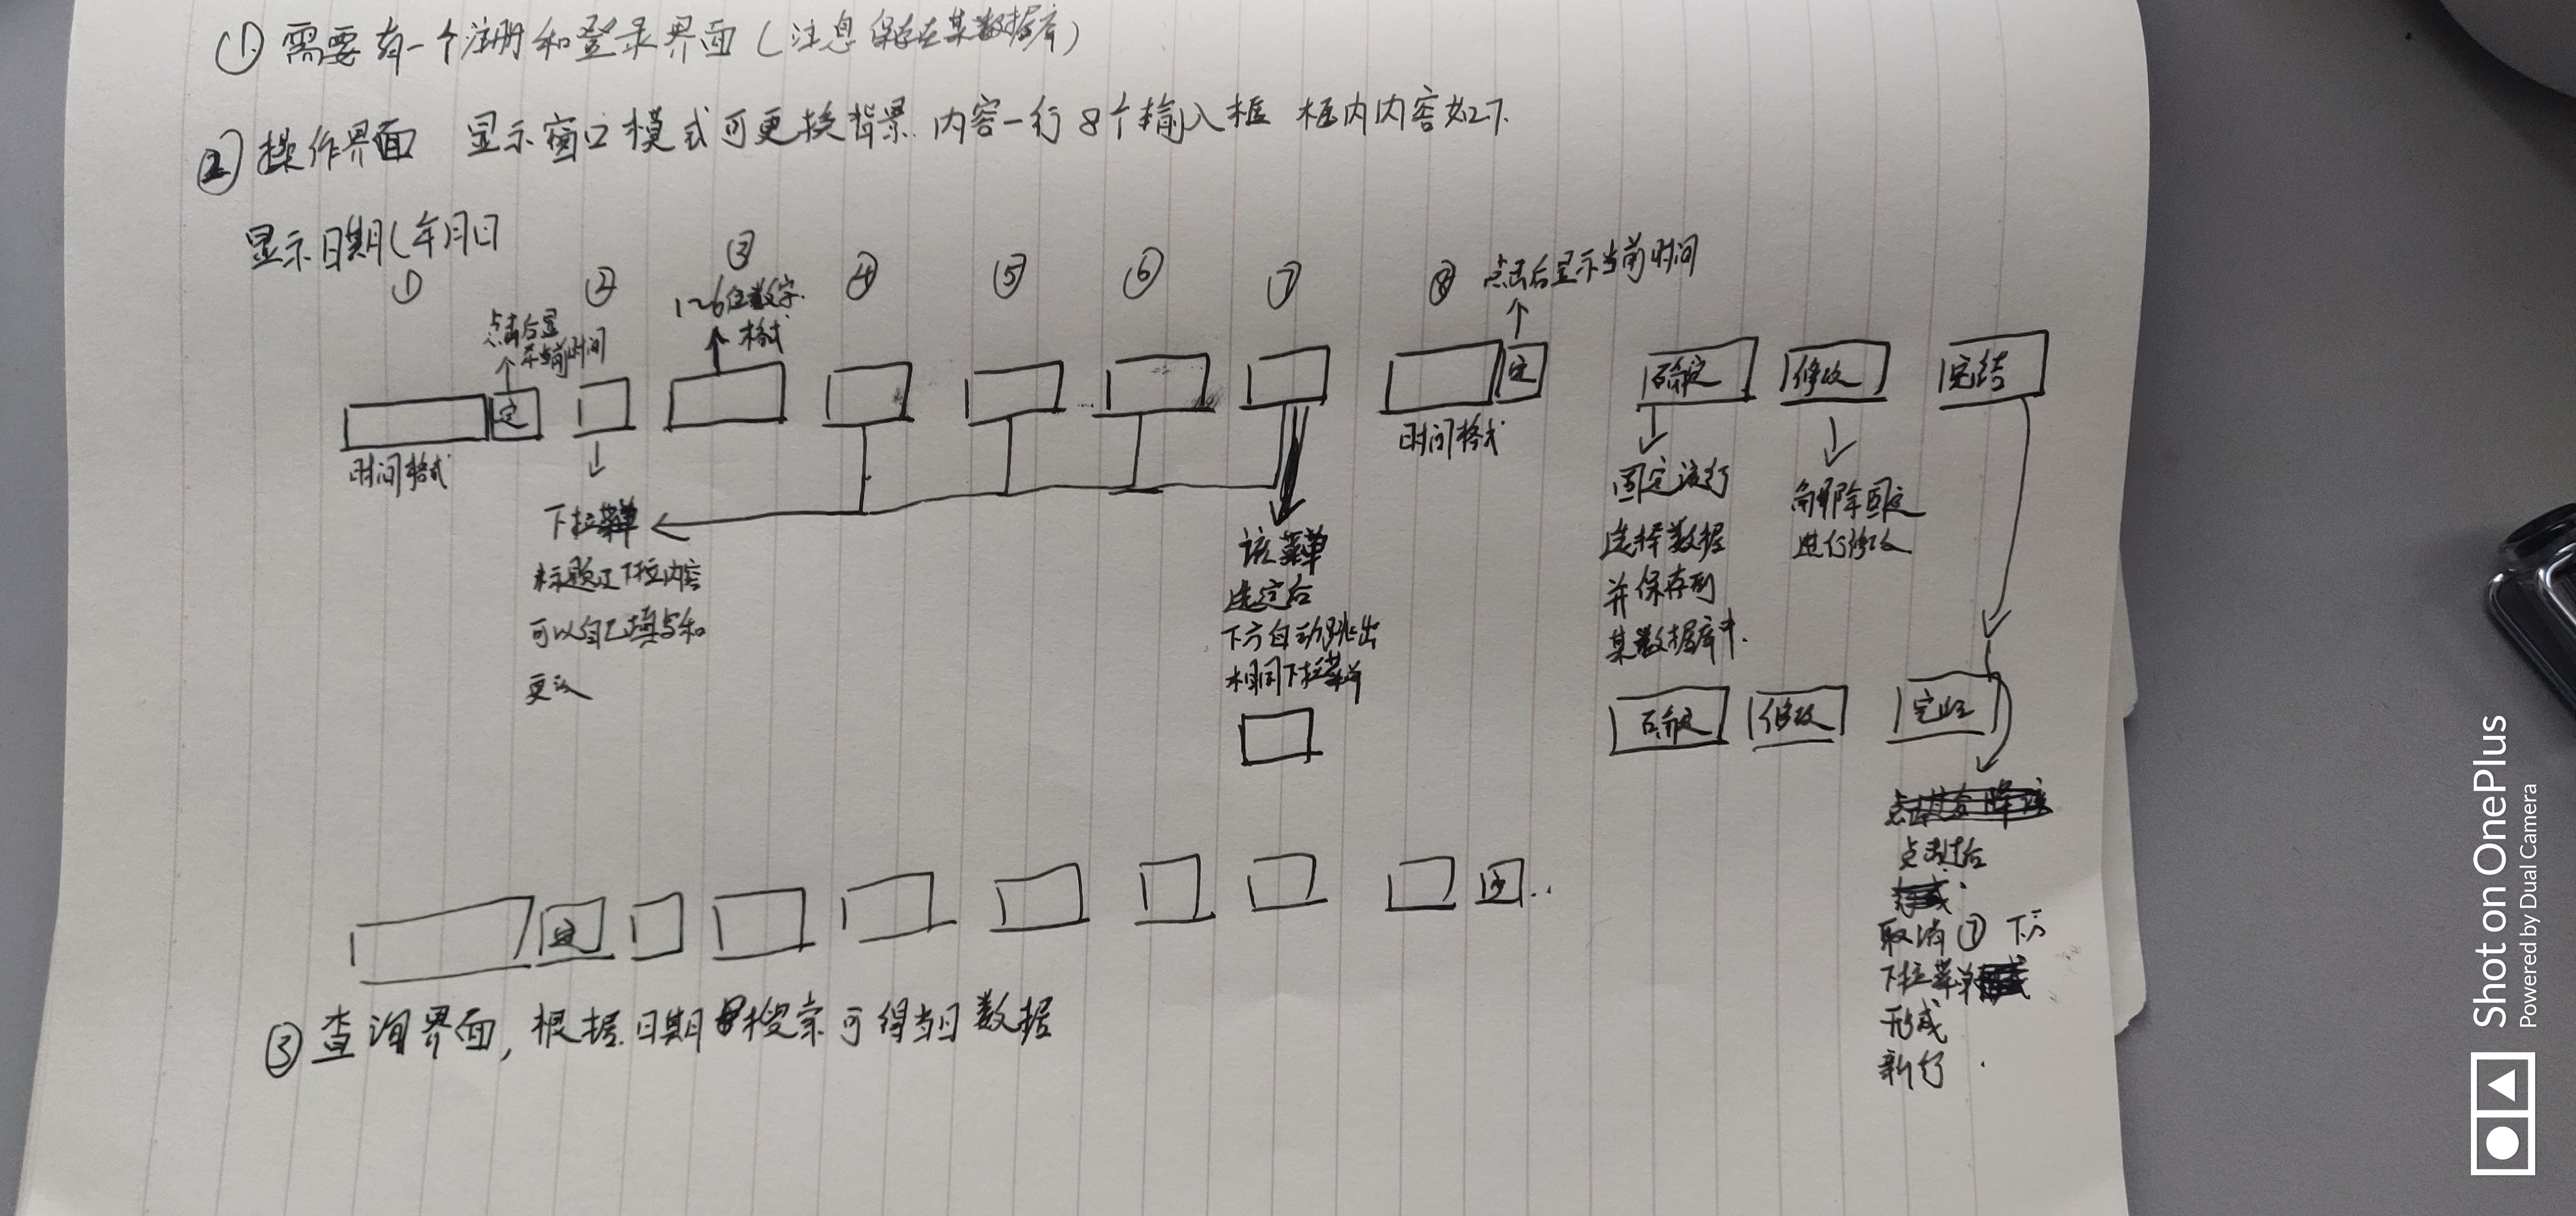 ① 需要有一个注册和登录界面（注息保存在某数据库）
② 操作界面 显示窗口模式可更换背景.内容一行8个输入框 框内内容如下.
显示日期（年月日
① ② ③ ④ ⑤ ⑥ ⑦ ⑧
点击后显
示当前时间
1~6位数字
格式
点击后显示当前时间
定
定
确定 修改 完结
时间格式
时间格式
下拉菜单
标题及下拉内容
可以自己填写和
更改
该菜单
选定后
下方自动跳出
相同下拉菜单
固定该行
选择数据
并保存到
某数据库中.
解除固定
进行修改
确定 修改 完结
点击过后
取消⑦下方
下拉菜单
形成
新行.
定
定..
③ 查询界面，根据日期搜索可得当日数据
Shot on OnePlus
Powered by Dual Camera